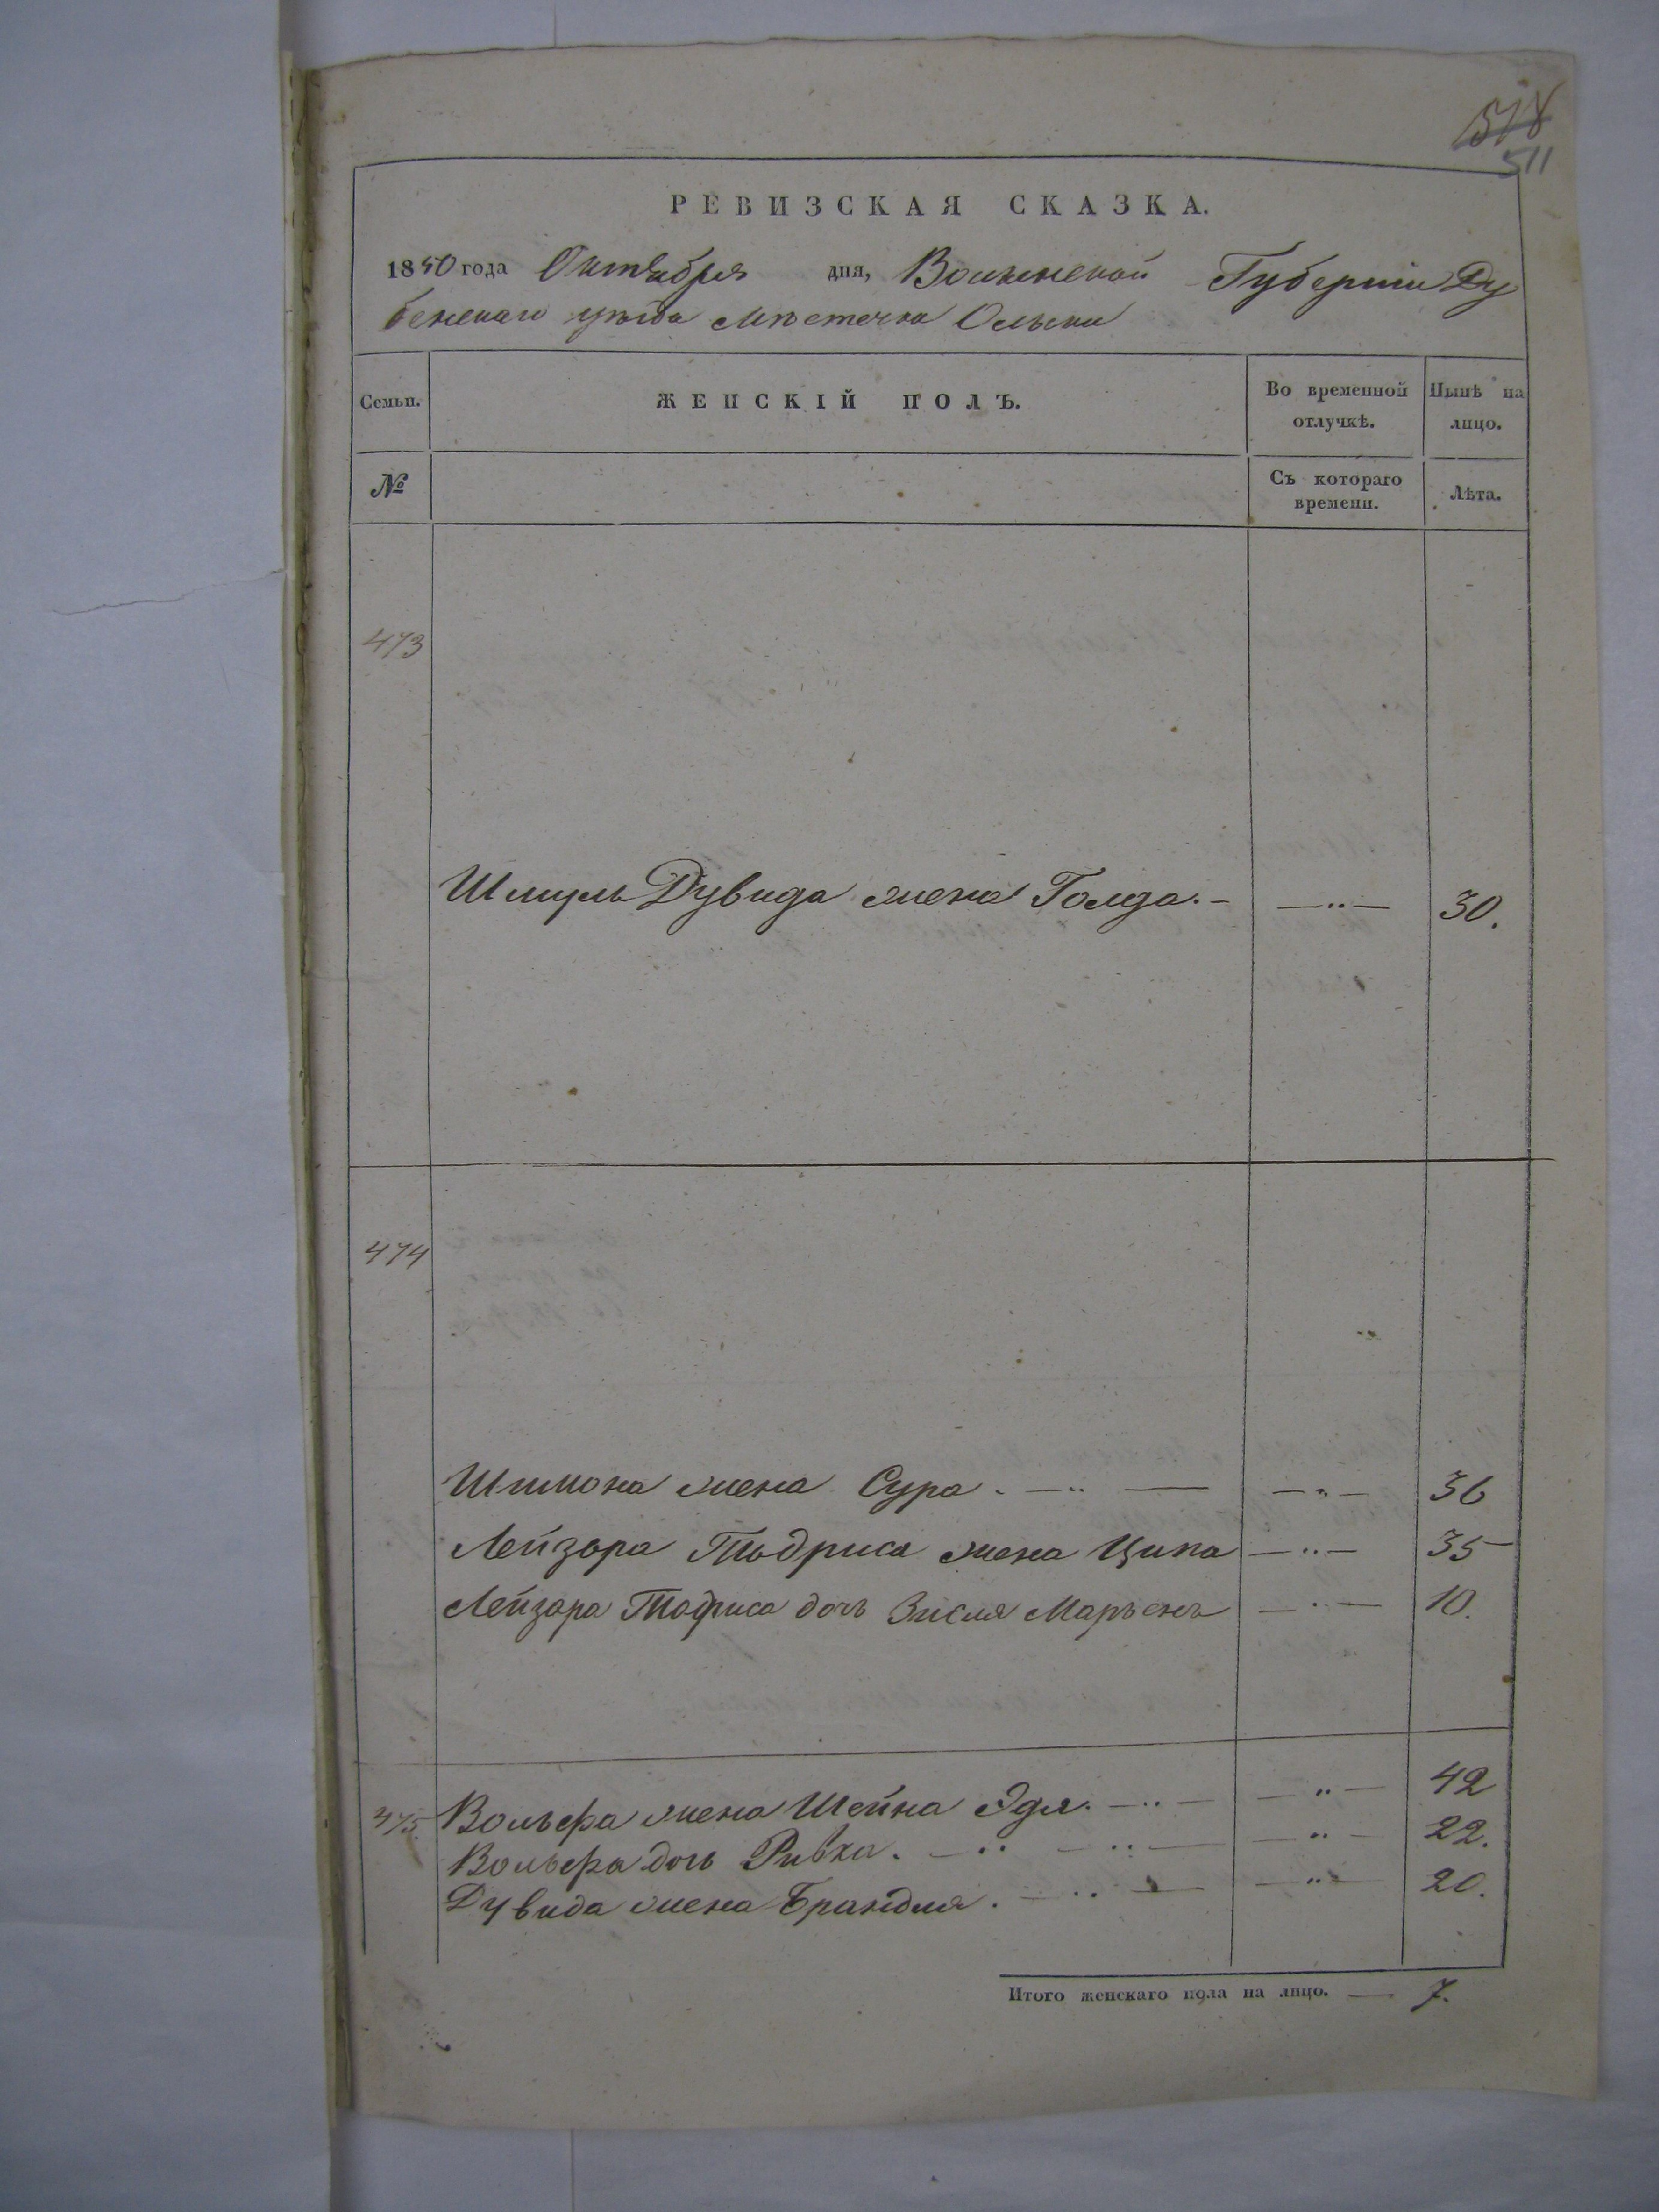 518
511
РЕВИЗСКАЯ СКАЗКА.
1850 года Октября дня, Волынской Губернiи Ду
бенскаго уѣзда мѣстечка Олыки
Семьи. ЖЕНСКIЙ ПОЛЪ. Во временной отлучкѣ. Нынѣ на лицо.
№ Съ котораго времени. Лѣта.
473
Шмуль Дувида жена Голда. - —"— 30.
474
Шимона жена Сура. —"— —"— 36
Лейзора Тодриса жена Ципа —"— 35
Лейзора Тодриса дочь Зисля Марьемъ —"— 10.
475 Вольфа жена Шейна Эдля. —"— —"— 42
Вольфа дочь Ривка. —"— —"— —"— 22.
Дувида жена Брандля. —"— —"— 20.
Итого женскаго пола на лицо. — 7.